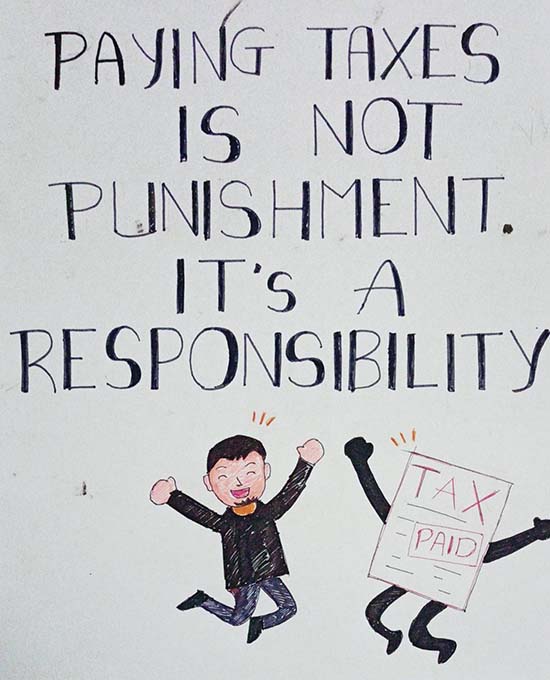 PAYING TAXES
IS NOT
PUNISHMENT.
IT's A
RESPONSIBILITY
TAX
PAID